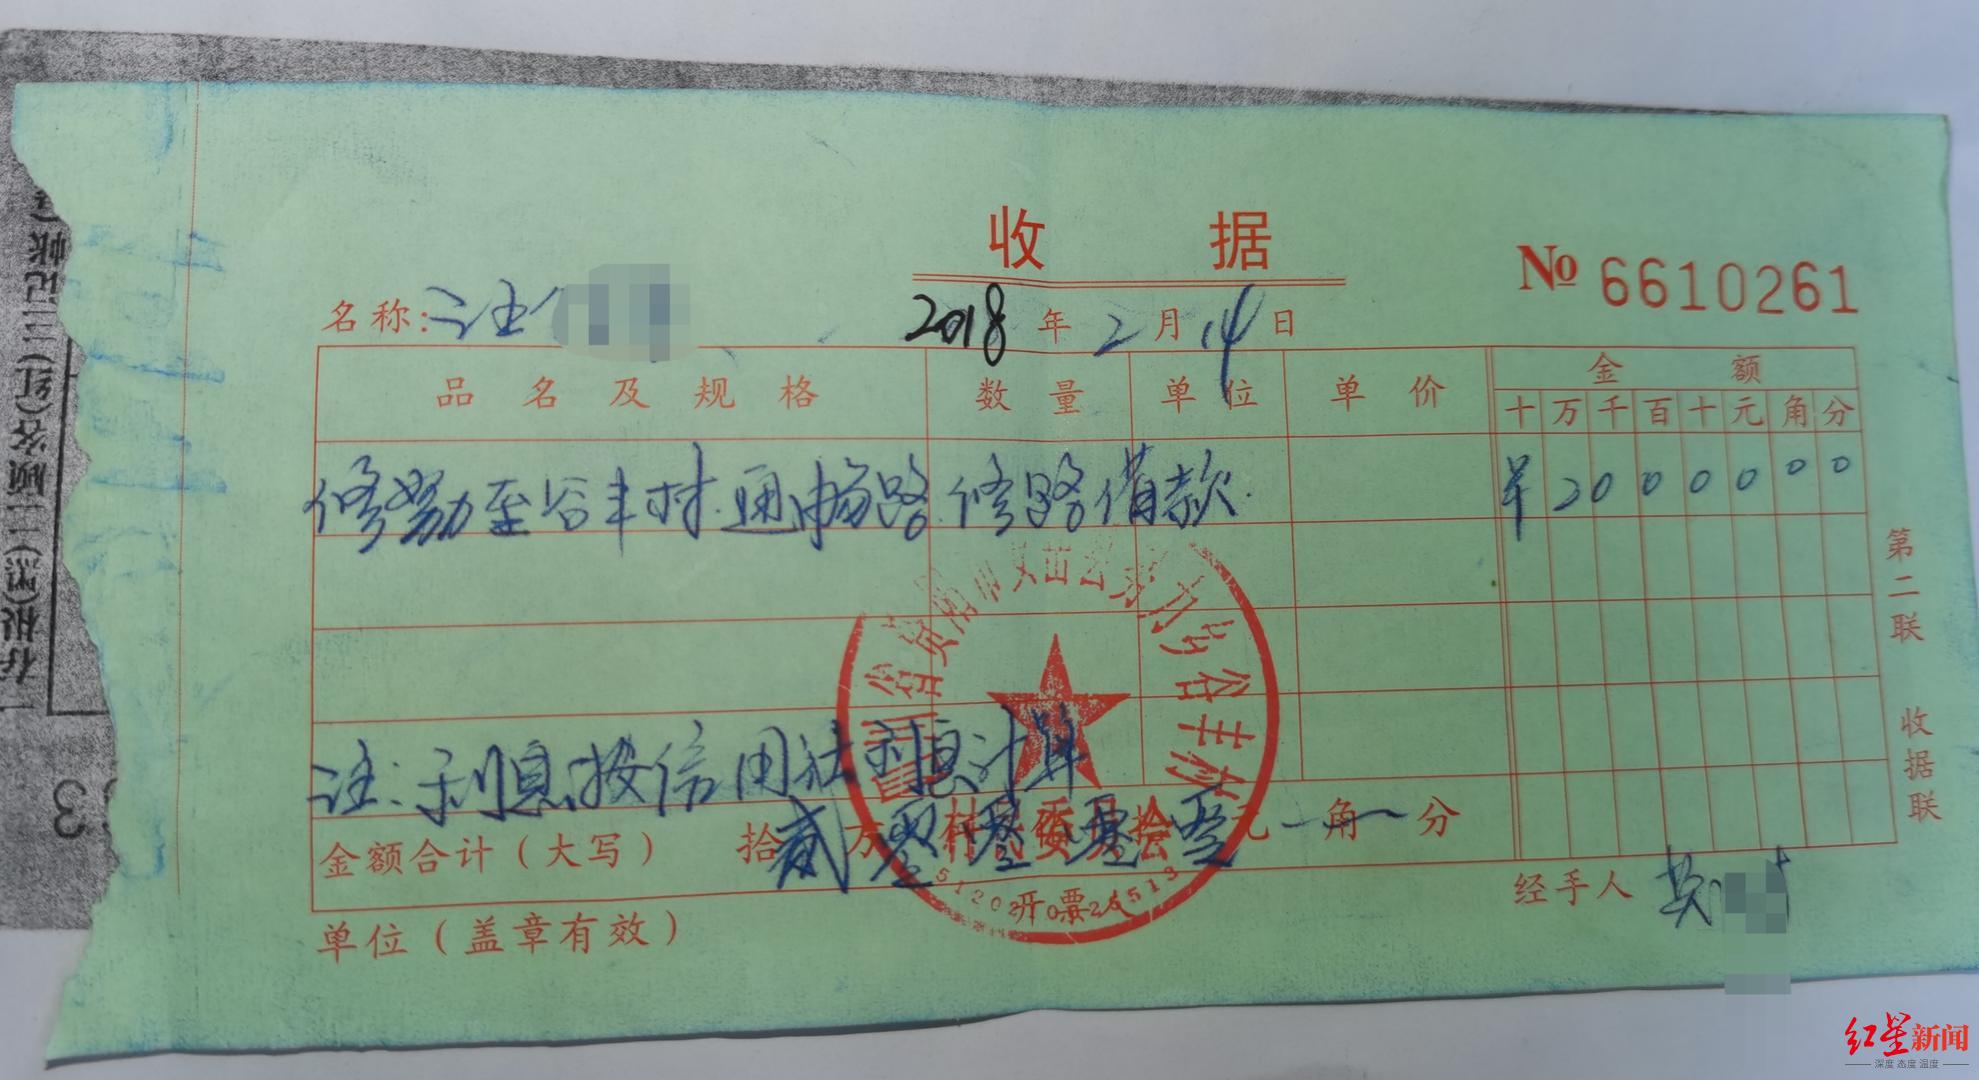 收 据
No 6610261
名称: 汪
2018 年 2 月 14 日
品名及规格 数量 单位 单价 金额
十 万 千 百 十 元 角 分
修努力至谷丰村通畅路修路借款. ¥ 2 0 0 0 0 0 0
注:利息按信用社利息计算
金额合计(大写) 拾 贰 万 零 零 零 零 元 一 角 一 分
单位(盖章有效) 开票人 经手人
省资阳市 谷丰村
村民委员会
第二联 收据联
存根(黑)二顾客(红)三记帐(
红星新闻
深度 态度 温度